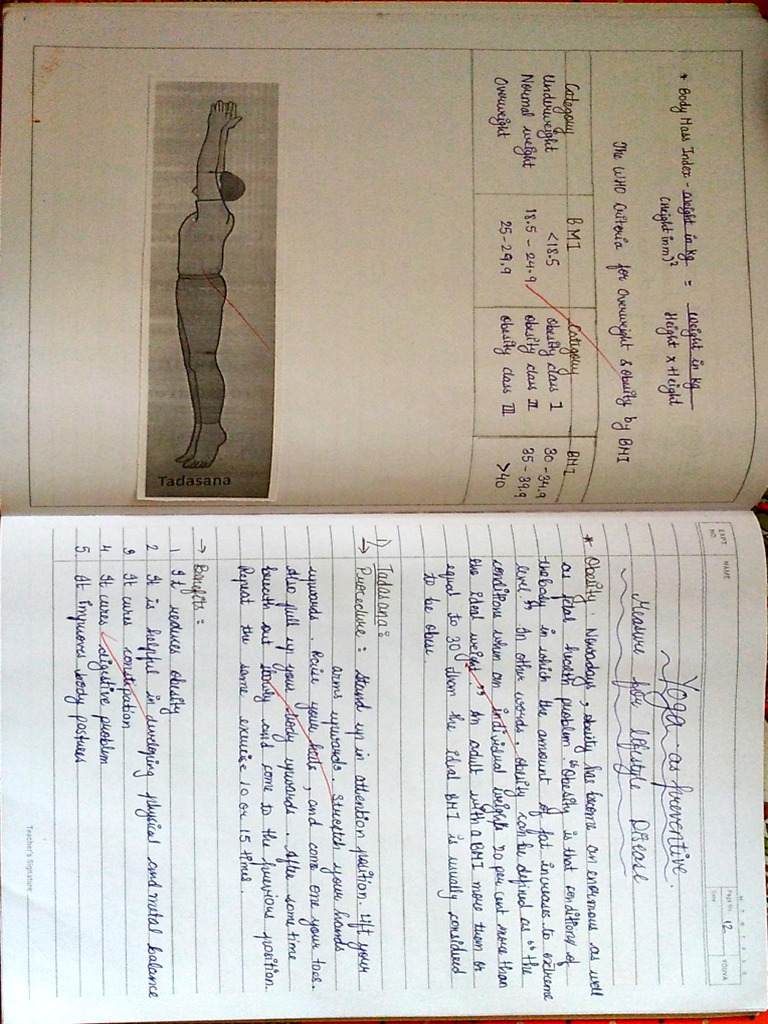 * Body Mass Index - weight in kg = weight in kg
(height in m)² Height x Height
The WHO Criteria for Overweight & obesity by BMI
Category BMI Category BMI
Underweight <18.5 obesity class I 30 - 34.9
Normal weight 18.5 - 24.9 obesity class II 35 - 39.9
Overweight 25 - 29.9 obesity class III >40
Tadasana
EXPT. NO. NAME
Page No. 12
Date
YOUVA
Yoga as preventive
Measure for lifestyle Disease
* Obesity: Nowadays, obesity has become an enormous as well
as fatal health problem. "Obesity is that condition of
the body in which the amount of fat increases to extreme
level." In other words, obesity can be defined as "the
conditions when an individual weighs 20 per cent more than
the ideal weight." An adult with a BMI more than or
equal to 30 than the ideal BMI is usually considered
to be obese
1) Tadasana:
→ Procedure: Stand up in attention position. Lift your
arms upwards. Stretch your hands
upwards. Raise your heels, and come one your toes.
Also pull up your body upwards. After some time
breath out slowly and come to the previous position.
Repeat the same exercise 10 or 15 times.
→ Benefits:
1 It reduces obesity
2 It is helpful in developing physical and metal balance
3 It cures constipation
4 It cures digestive problem
5. It improves body postures
Teacher's Signature